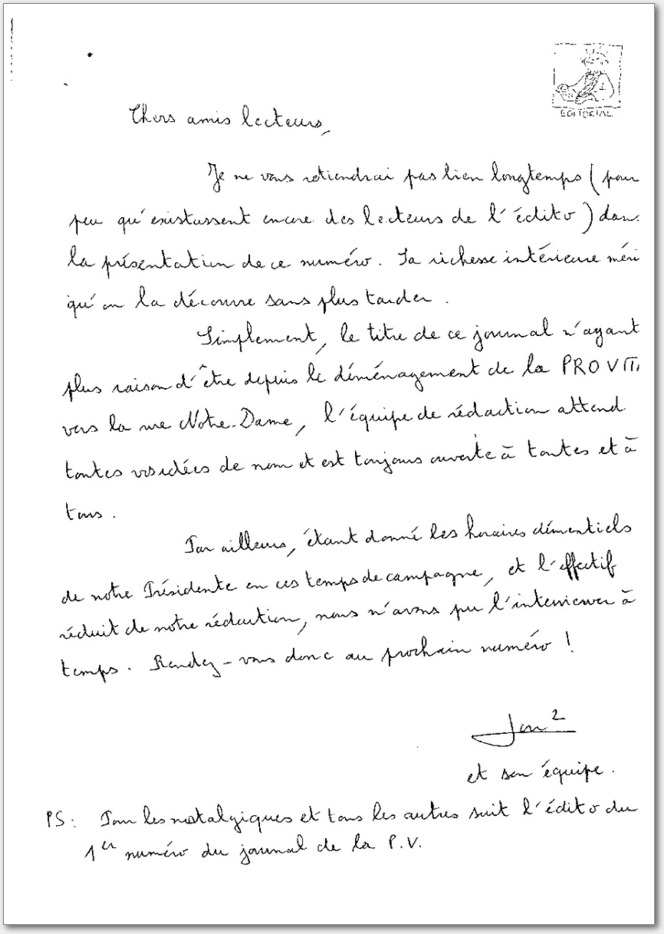 EDITORIAL
Chers amis lecteurs,
Je ne vous retiendrai pas bien longtemps (pour
peu qu'existassent encore des lecteurs de l'édito) dans
la présentation de ce numéro. Sa richesse intérieure méri
qu'on la découvre sans plus tarder.
Simplement, le titre de ce journal n'ayant
plus raison d'être depuis le déménagement de la PROVITI
vers la rue Notre-Dame, l'équipe de rédaction attend
toutes vos idées de nom et est toujours ouverte à toutes et à
tous.
Par ailleurs, étant donné les horaires démentiels
de notre Présidente en ces temps de campagne, et l'effectif
réduit de notre rédaction, nous n'avons pu l'interviewer à
temps. Rendez-vous donc au prochain numéro !
et son équipe.
PS: Pour les nostalgiques et tous les autres suit l'édito du
1er numéro du journal de la P.V.